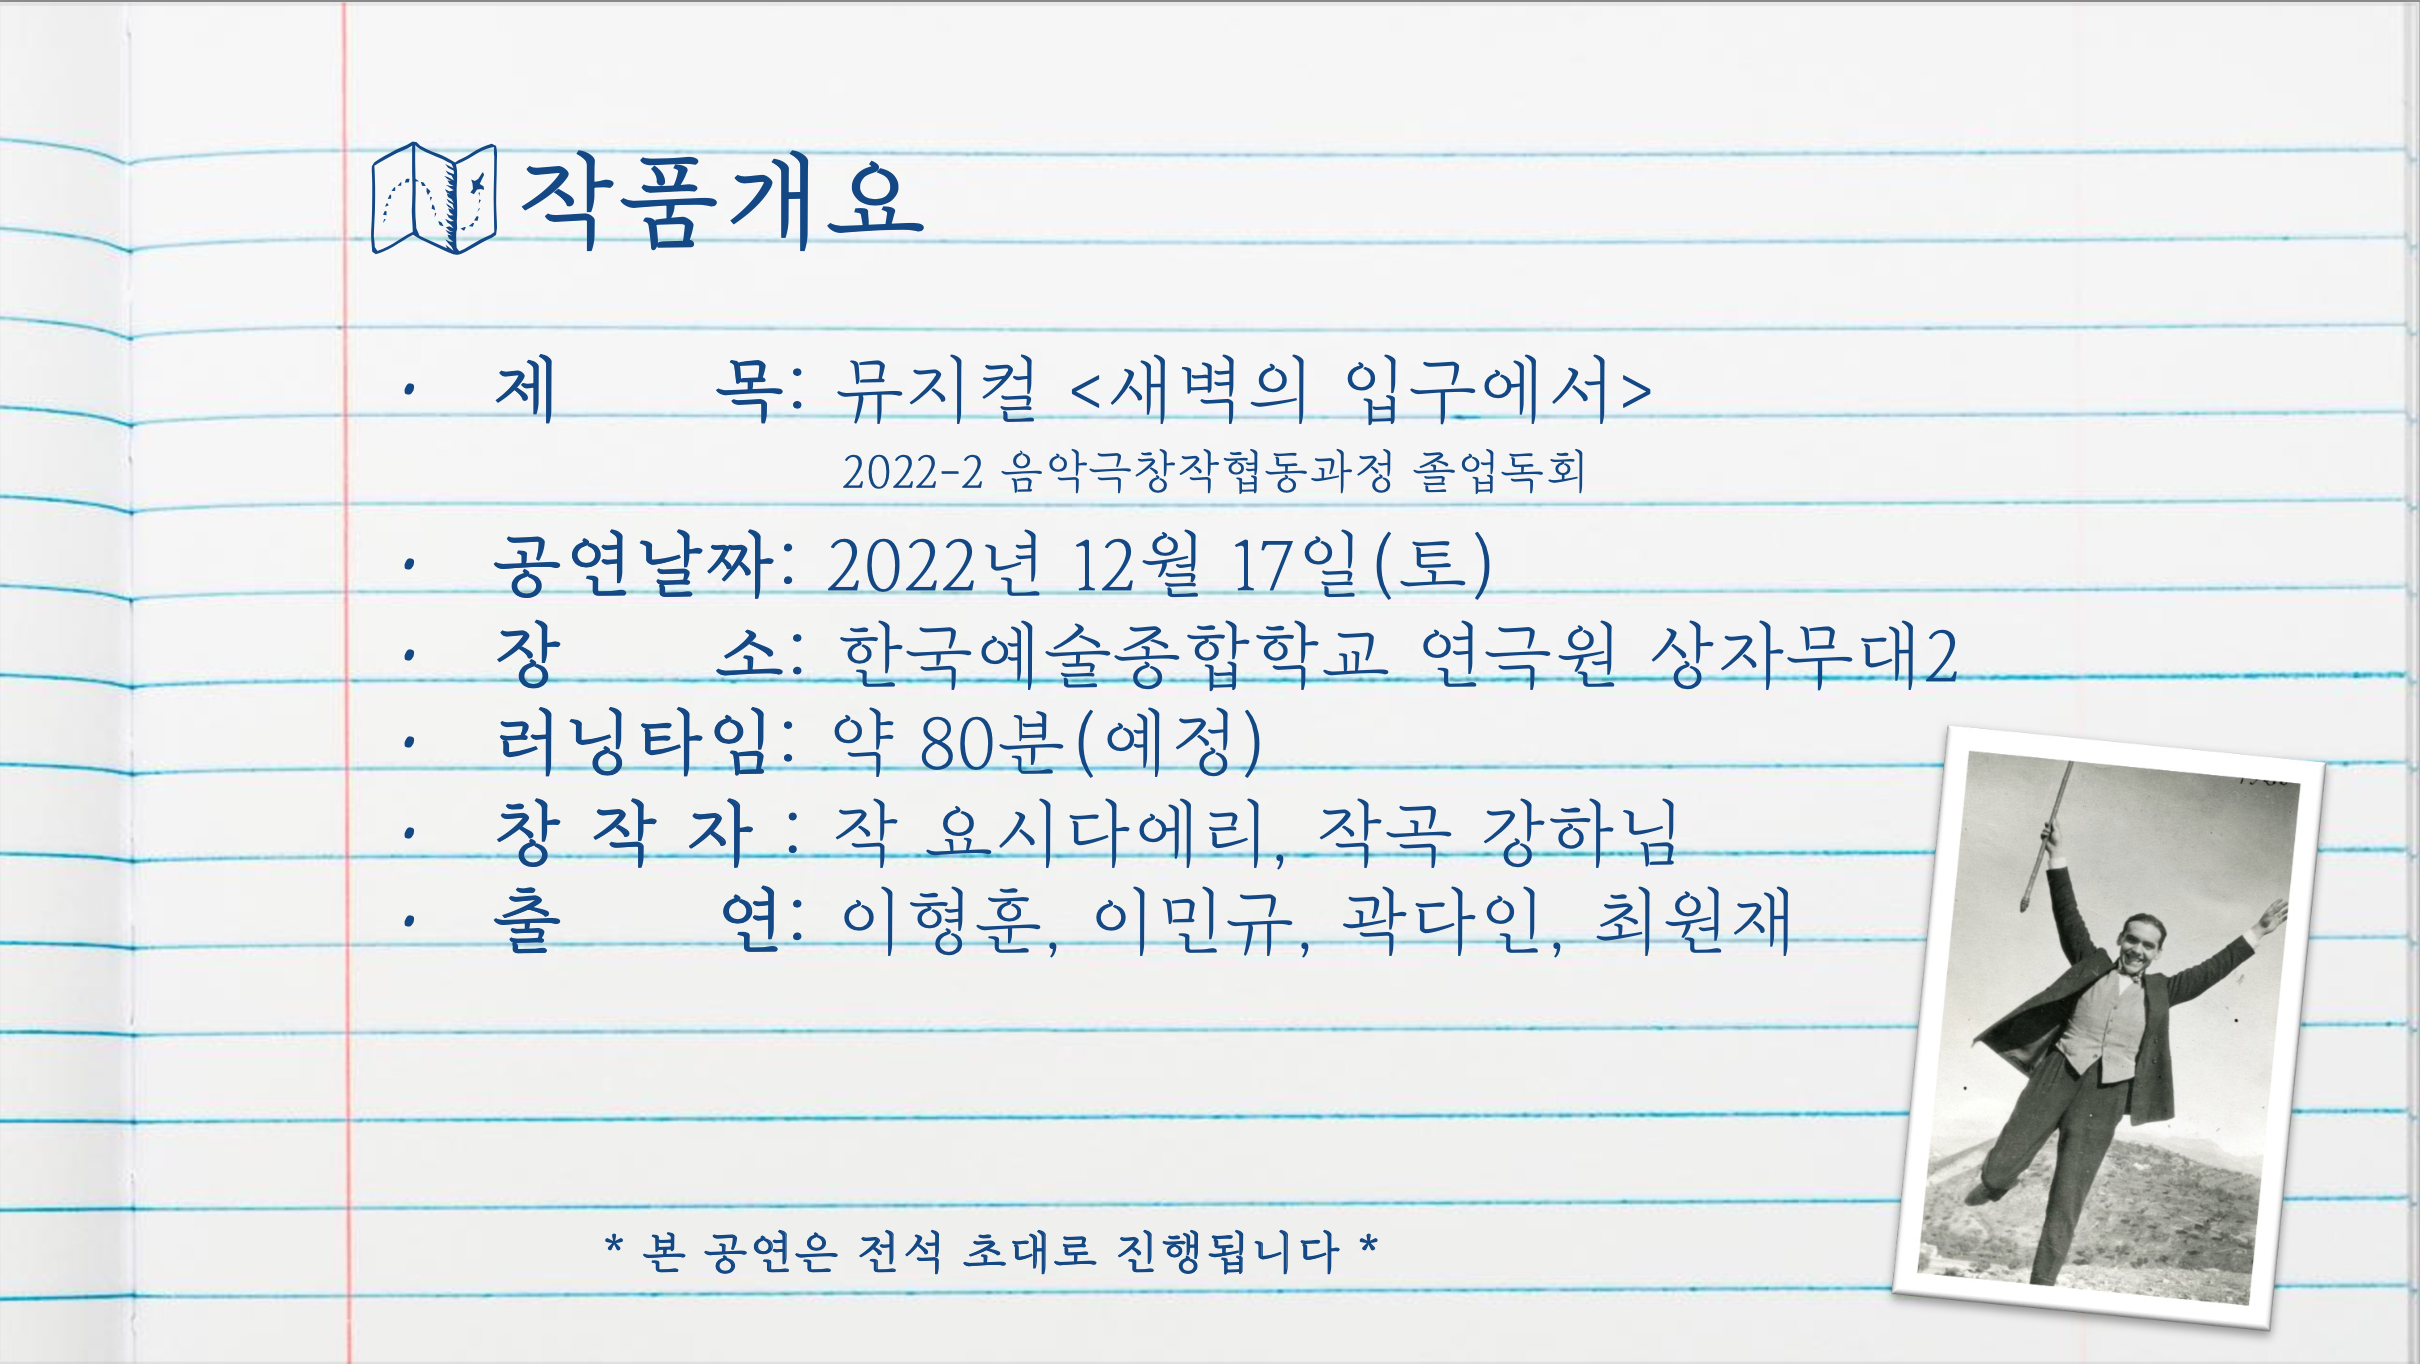 작품개요
• 제 목: 뮤지컬 <새벽의 입구에서>
2022-2 음악극창작협동과정 졸업독회
• 공연날짜: 2022년 12월 17일(토)
• 장 소: 한국예술종합학교 연극원 상자무대2
• 러닝타임: 약 80분(예정)
• 창 작 자 : 작 요시다에리, 작곡 강하님
• 출 연: 이형훈, 이민규, 곽다인, 최원재
* 본 공연은 전석 초대로 진행됩니다 *